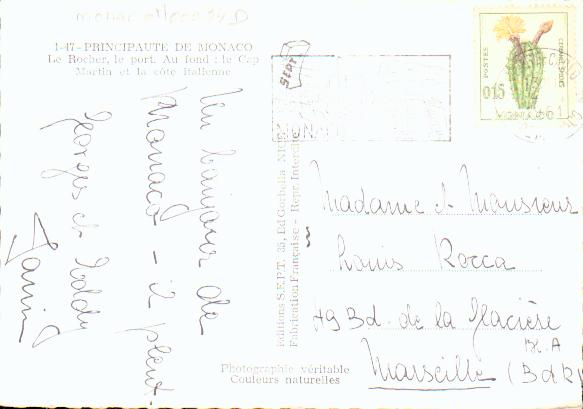 1-47 - PRINCIPAUTE DE MONACO
Le Rocher, le port. Au fond : le Cap
Martin et la côte italienne
Un bonjour de
Monaco - il pleut.
Georges et
SEPT
Editions S.E.P.T. 35, Bd Gorbella NICE
Fabrication Française - Repr. Interdite
Photographie véritable
Couleurs naturelles
POSTES
0,15
MONACO
MONACO
Madame et Monsieur
Louis Rocca
49 Bd. de la Glacière
Bt. A
Marseille (BdR)